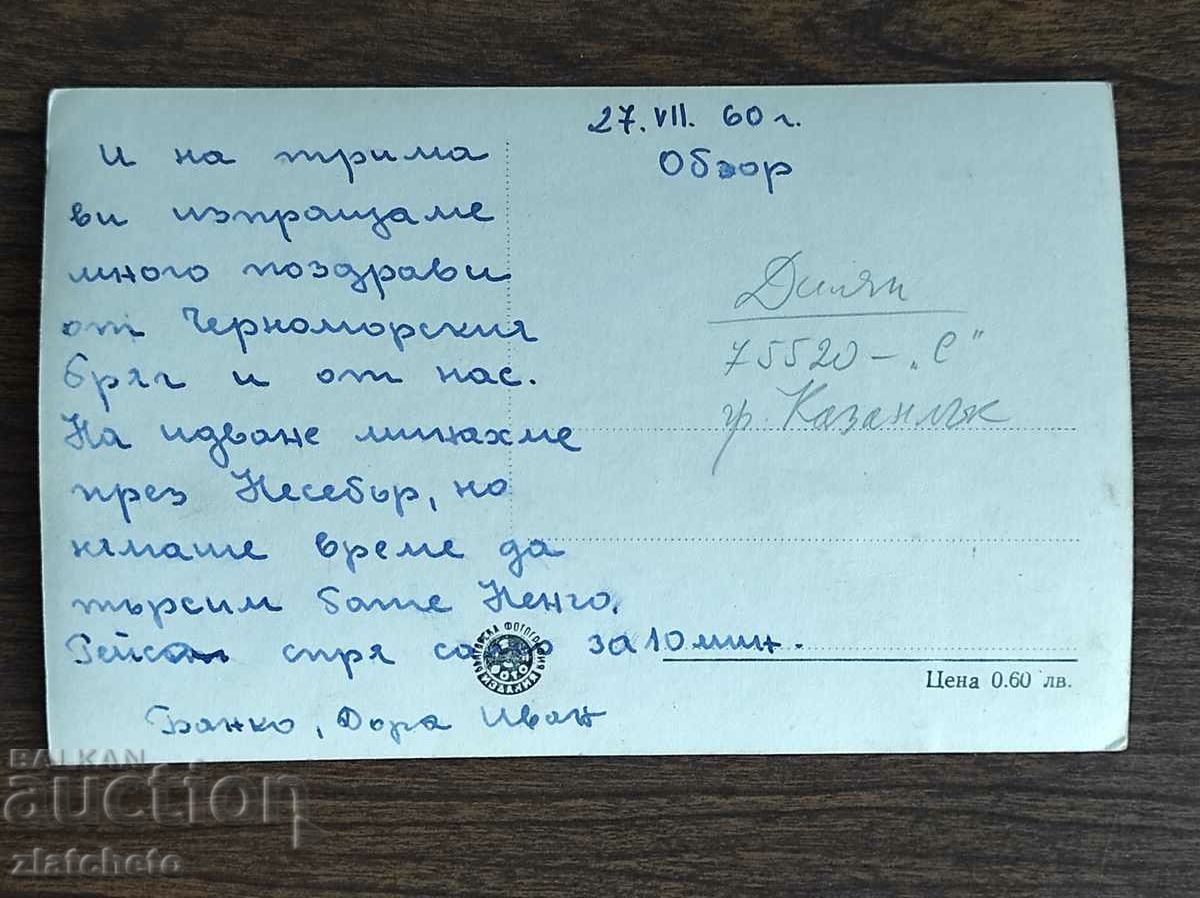 27. VII. 60 г.
Обзор
И на трима
ви изпращаме
много поздрави
от Черноморския
бряг и от нас.
На идване минахме
през Несебър, но
нямаше време да
търсим бате Ненчо.
Рейсът спря само за 10 мин.
Банко, Дора Иван
Дилян
75520 – „С"
гр. Казанлък
БЪЛГАРСКА ФОТОГРАФИЯ
ФОТО
ИЗДАНИЯ
Цена 0.60 лв.
BALKAN
auction
zlatcheto